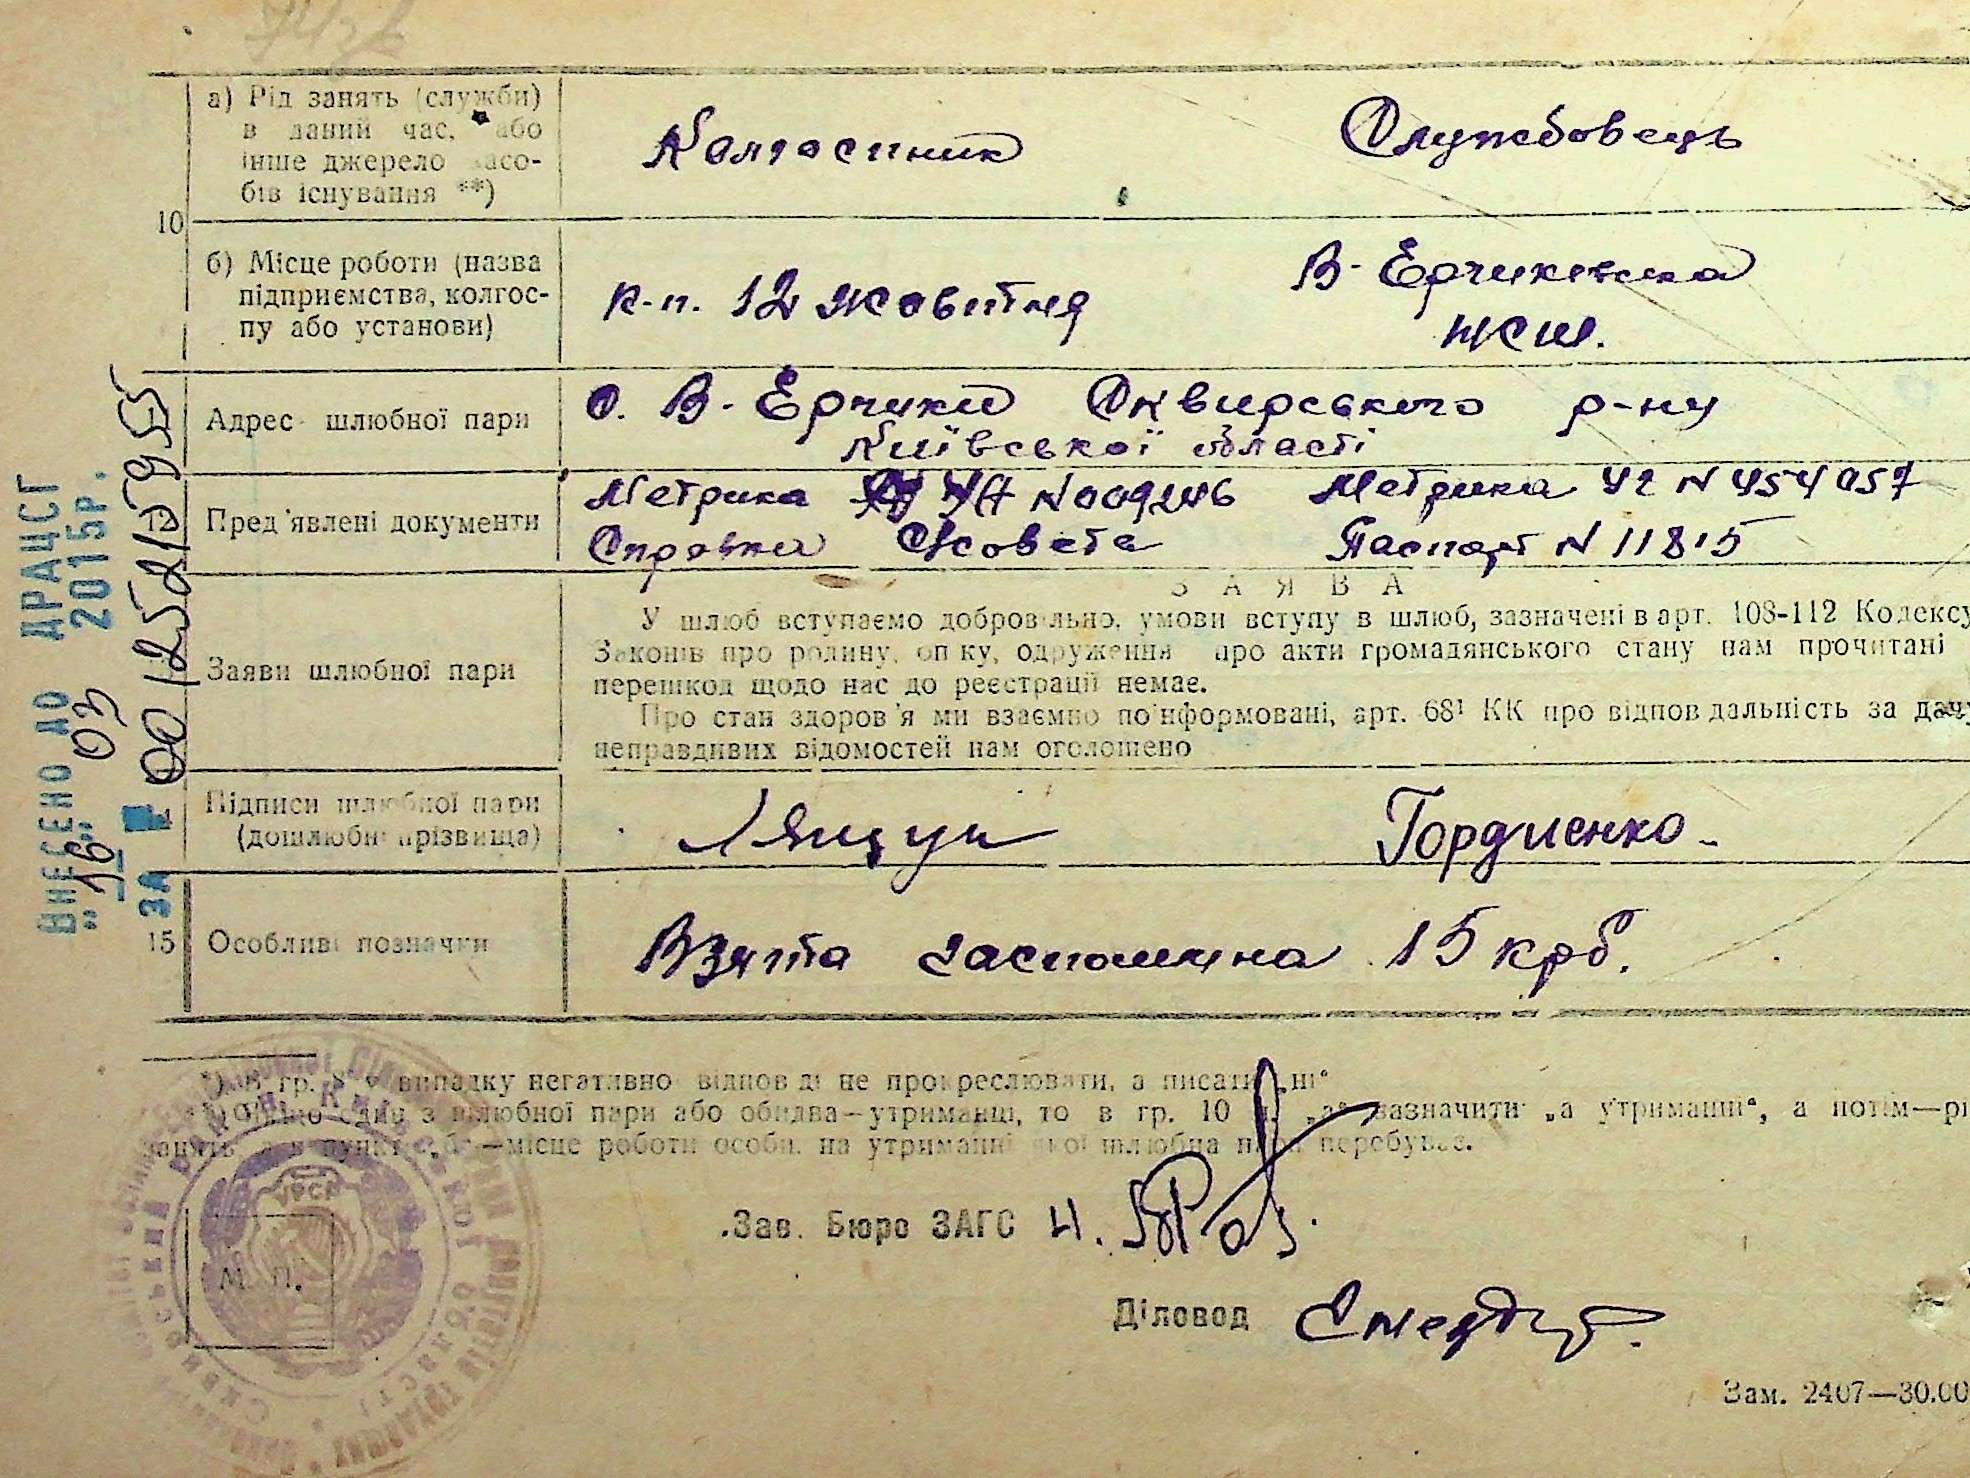 а) Рід занять (службн)
в даний час, або
інше джерело засо-
бів існування **)
Колгоспник
Службовець
10
б) Місце роботи (назва
підприємства, колгос-
пу або установи)
к-п. 12 Жовтня
В-Єрчиківська
НСШ.
Адрес шлюбної пари
с. В-Єрчики Сквирського р-ну
Київської області
12
Пред'явлені документи
Метрика УА N 009246
Метрика УZ N 454057
Справка С/совета
Паспорт N 11815
Заяви шлюбної пари
ЗАЯВА
У шлюб вступаємо добровільно, умови вступу в шлюб, зазначені в арт. 108-112 Кодексу
Законів про родину, опіку, одруження про акти громадянського стану нам прочитані
перешкод щодо нас до реєстрації немає.
Про стан здоров'я ми взаємно поінформовані, арт. 68¹ КК про відповідальність за дачу
неправдивих відомостей нам оголошено
Підписи шлюбної пари
(дошлюбні прізвища)
Лящук
Гордиенко
15
Особливі позначки
Взята госпошлина 15 крб.
ВНЕСЕНО ДО ДРАЦСГ
"16" 03 2015р.
ЗА № 00125215955
*) В гр. 8 у випадку негативної відповіді не прокреслювати, а писати „ні“
**) Якщо один з шлюбної пари або обидва—утриманці, то в гр. 10 п. „а“ зазначити „а утриманці“, а потім—рі
занять, а в пункті „б“—місце роботи особи, на утриманні якої шлюбна пара перебуває.
Зав. Бюро ЗАГС
Діловод
М. П.
УРСР
Зам. 2407—30.00